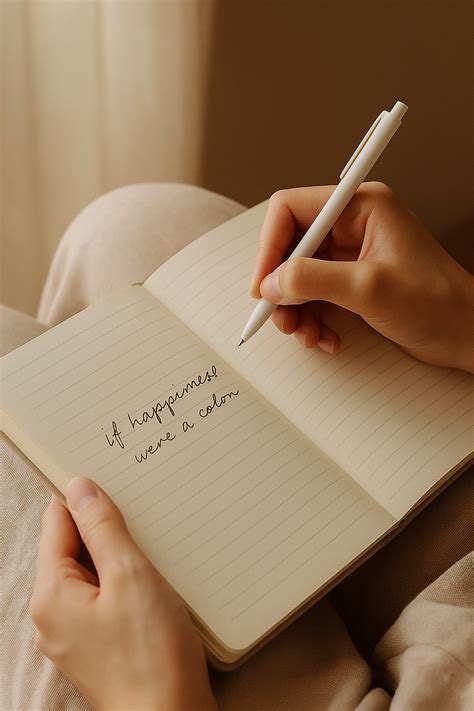 if happimess
were a colon